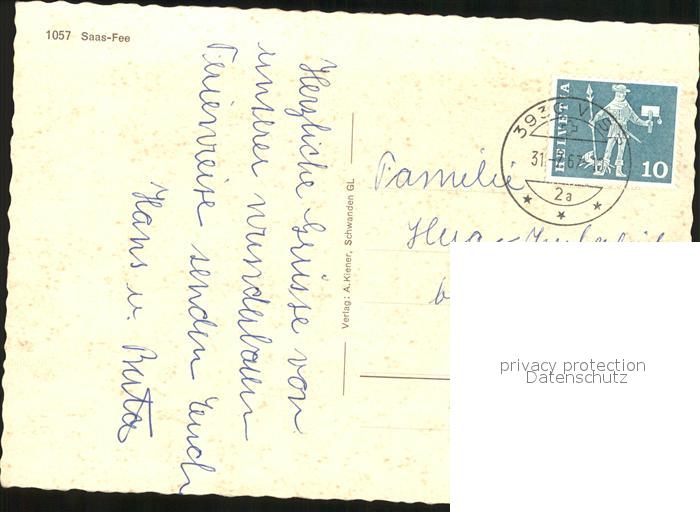 1057 Saas-Fee
Herzliche Grüsse von
unserer wunderbaren
Ferienreise senden Euch
Hans u. Berta
Verlag: A. Kiener, Schwanden GL
Familie
HELVETIA
10
3930 VI
31
67
2a
privacy protection
Datenschutz